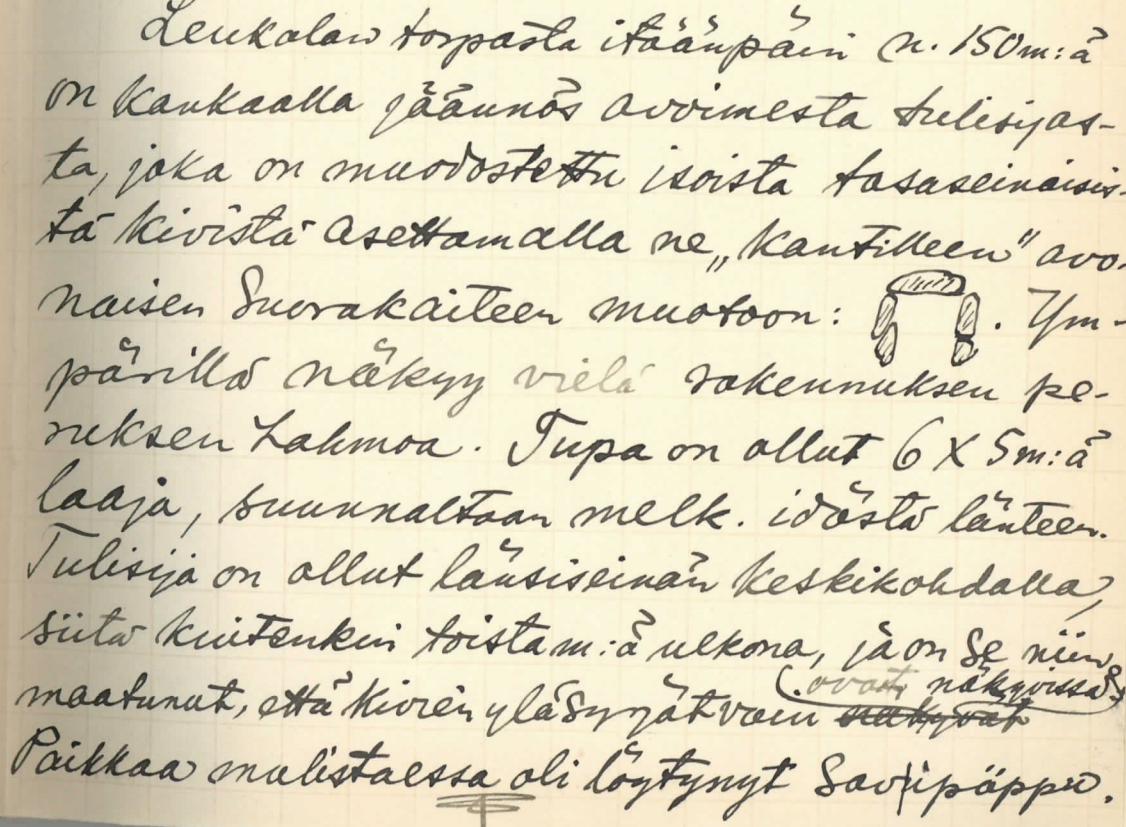 Leukolan torpasta itäänpäin n. 150 m:ä
on kankaalla jäännös avoimesta tulisijas-
ta, joka on muodostettu isoista tasaseinäisis-
tä kivistä asettamalla ne „kantilleen" avo-
naisen suorakaiteen muotoon: . Ym-
pärillä näkyy vielä rakennuksen pe-
ruksen hahmoa. Tupa on ollut 6 X 5 m:ä
laaja, suunnaltaan melk. idästä länteen.
Tulisija on ollut länsiseinän keskikohdalla,
siitä kuitenkin toista m:ä ulkona, ja on se niin
(ovat näkyvissä)
maatunut, että kivien yläsyrjät vain näkyvät
Paikkaa mulistaessa oli löytynyt savipäppu.